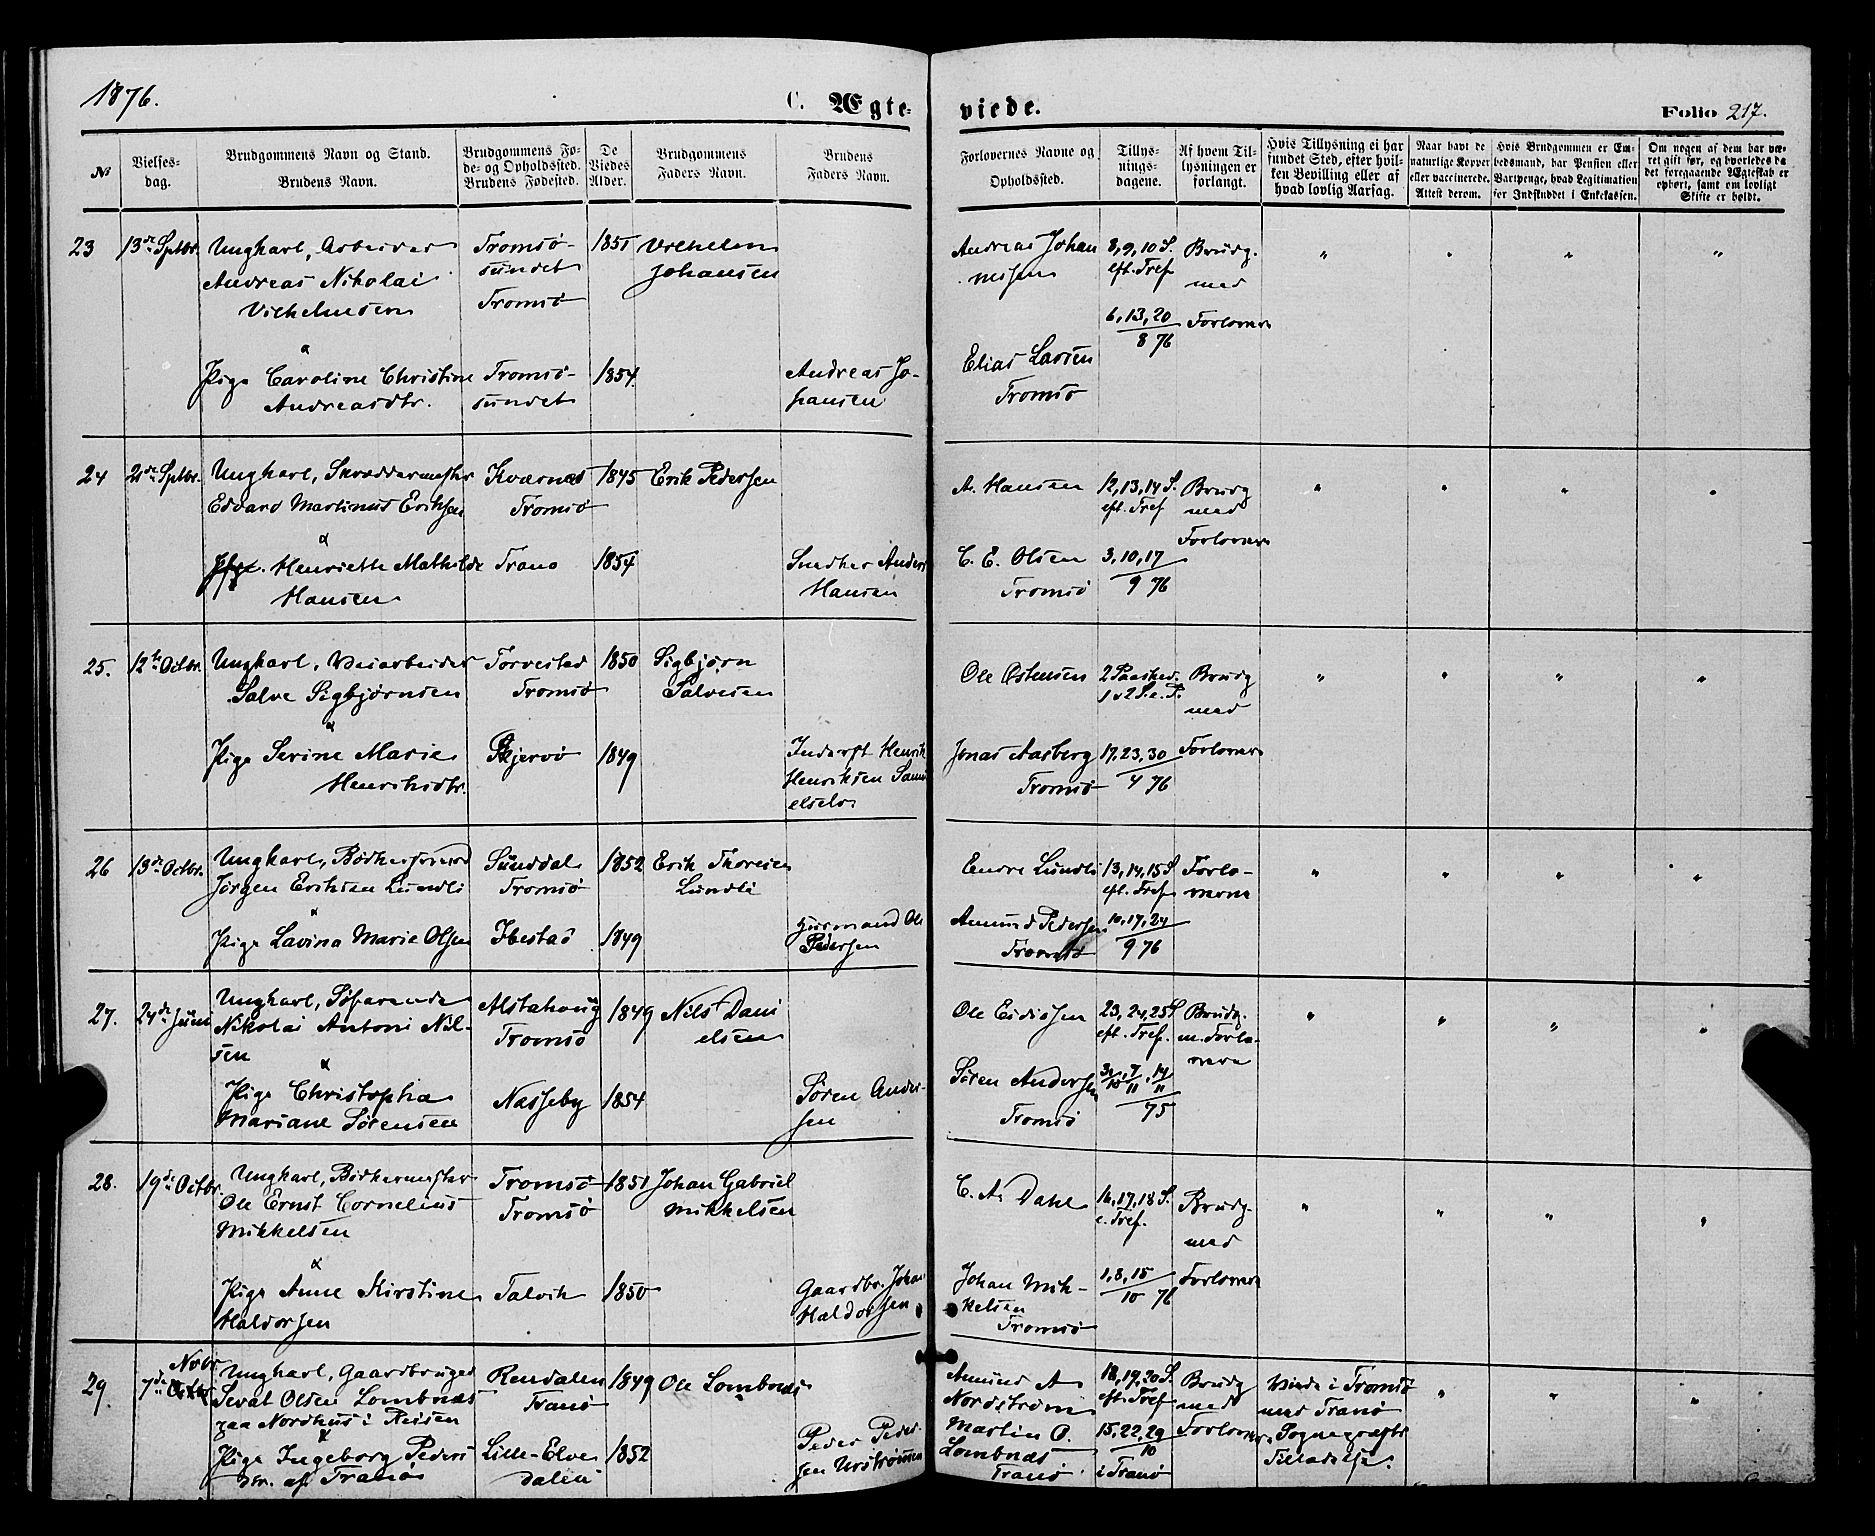 1876.
C. Ægte-
viede.
Folio 217.
№
Vielses-
dag.
Brudgommens Navn og Stand.
Brudens Navn.
Brudgommens Fø-
de- og Opholdssted.
Brudens Fødested.
De
Viedes
Alder.
Brudgommens
Faders Navn.
Brudens
Faders Navn.
Forlovernes Navne og
Opholdssted.
Tillys-
nings-
dagene.
Af hvem Til-
lysningen er
forlangt.
Hvis Tillysning ei har
fundet Sted, efter hvil-
ken Bevilling eller af
hvad lovlig Aarsag.
Naar havt de
naturlige Kopper
eller vaccinerede.
Attest derom.
Hvis Brudgommen er Em-
bedsmand, har Pension eller
Vartpenge, hvad Legitimation
for Indskuddet i Enkekassen.
Om nogen af dem har væ-
ret gift før, og hvorledes da
det foregaaende Ægteskab er
ophørt, samt om lovligt
Skifte er holdt.
23
13de Septbr.
Ungkarl, Arbeider
Andreas Nikolai
Vilhelmsen
&
Pige Caroline Christine
Andreasdtr.
Tromsø-
sundet
Tromsø
Tromsø-
sundet
1851
1854
Vilhelm
Johansen
Andreas Jo-
hansen
Andreas Johan
nesen
Elias Larsen
Tromsø
8, 9, 10 S.
eft. Tref
6, 13, 20
8 76
Brudg.
med
Forlovere
" " " "
24
21de Septbr.
Ungkarl, Skræddermester
Edvard Martinus Eriksen
&
Pige Henriette Mathilde
Hansen
Kværnes
Tromsø
Trano
1845
1854
Erik Pedersen
Snedker Anders
Hansen
A. Hansen
C. E. Olsen
Tromsø
12, 13, 14 S.
eft. Tref
3, 10, 17
9 76
Brudg
med
Forlovere
" " " "
25.
12te Octbr.
Ungkarl, Veiarbeider
Salve Sigbjørnsen
&
Pige Serine Marie
Henriksdtr.
Torvestad
Tromsø
Skjervø
1850
1849
Sigbjørn
Salvesen
Inderst Henrik
Henriksen Samu
elselv
Ole Østensen
Jonas Aasberg
Tromsø
2 Paasked.
1 & 2 S. e. P.
17, 23, 30
4 76
Brudg
med
Forlovere
" " " "
26
13de Octbr.
Ungkarl, Bødkersvend
Jørgen Eriksen Lundli
&
Pige Lavina Marie Olsen
Sunddal
Tromsø
Ibestad
1852
1849
Erik Thoresen
Lundli
Husmand Ole
Pedersen
Endre Lundli
Amund Pedersen
Tromsø
13, 14, 15 S
eft. Tref
10, 17, 24
9 76
Forlo-
verne
" " " "
27.
24de Juni
Ungkarl, Søfarende
Nikolai Antoni Nil-
sen
&
Pige Christopha
Mariane Sørensen
Alstahoug
Tromsø
Nasseby
1849
1854
Nils Dani
elsen
Søren Ander-
sen
Ole Eidissen
Søren Andersen
Tromsø
23, 24, 25 S
eft. Tref.
31/10, 7/11, 14/11
75
Brudg.
m. Forlo-
vere
" " " "
28.
19de Octbr.
Ungkarl, Bødkermester
Ole Ernst Cornelius
Mikkelsen
&
Pige Anne Kirstine
Haldorsen
Tromsø
Tromsø
Talvik
1851
1850
Johan Gabriel
Mikkelsen
Gaardbr. Johan
Haldorsen
C. A. Dahl
Johan Mik-
kelsen
Tromsø
16, 17, 18 S.
e. Tref.
1, 8, 15
10 76
Brudg.
med
Forlovere
" " " "
29.
Novbr.
7de Octbr
Ungkarl, Gaardbruger
Sevat Olsen Lombnæs
paa Nordhus i Reisen
&
Pige Ingeborg Peders
dtr. af Tranø
Rendalen
Tranø
Lille-Elve
dalen
1849
1852
Ole Lombnæs
Peder Peder-
sen Urstrømmen
Amund A
Nordstrøm
Martin O.
Lombnæs
Tranø
18, 19, 20 S.
eft. Tref
15, 22, 29
10
i Tranø
Brudg
med
Forlovere
Viede i Tromsø
med Tranø
Sognepræsts
Tilladelse.
" " "